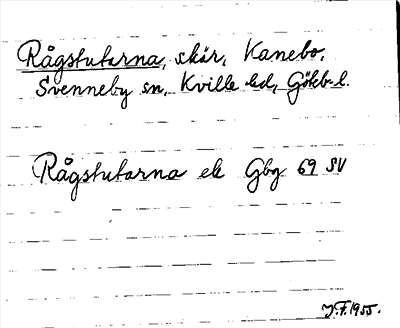 Rågstutarna, skär, Kanebo,
Svenneby sn, Kville hd, Götebl.
Rågstutarna ek Gbg 69 SV
J.F. 1955.